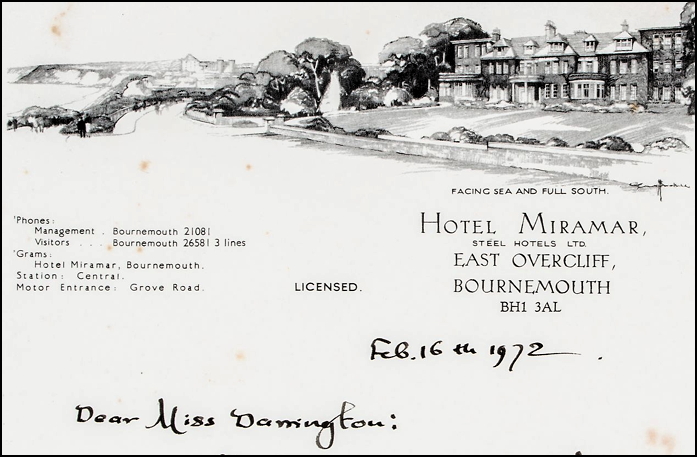 FACING SEA AND FULL SOUTH.
'Phones:
Management . Bournemouth 21081
Visitors . . . Bournemouth 26581 3 lines
'Grams:
Hotel Miramar, Bournemouth.
Station: Central.
Motor Entrance: Grove Road.
LICENSED.
HOTEL MIRAMAR,
STEEL HOTELS LTD.
EAST OVERCLIFF,
BOURNEMOUTH
BH1 3AL
Feb. 16 th 1972 .
Dear Miss Darrington: